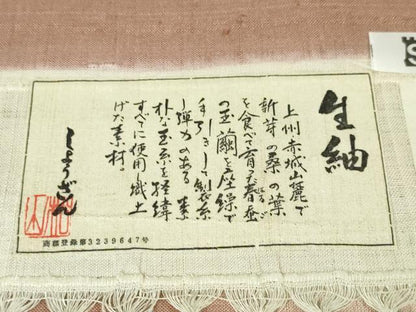 生紬
上州赤城山麓で
新芽の桑の葉
を食べて育った春蚕
の玉繭を座繰で
手引きして製糸
し弾力のある素
朴な玉糸を経緯
すべてに使用し織上
げた素材。
しょうざん
商標登録第3239647号
S